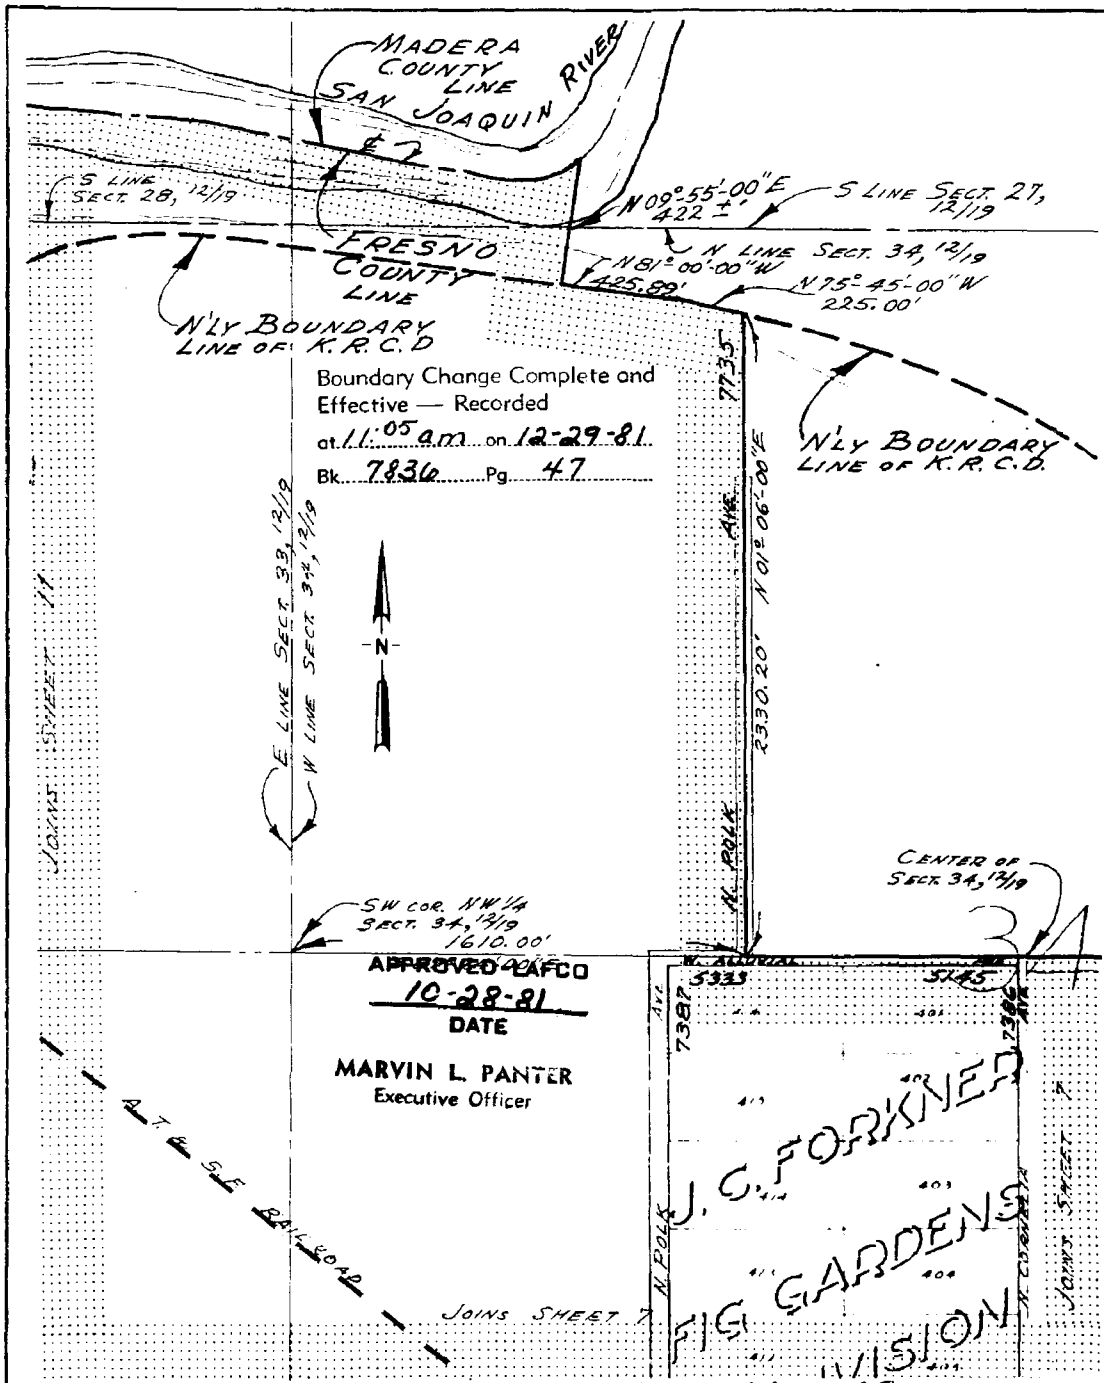 MADERA
COUNTY
LINE
SAN JOAQUIN RIVER
℄
S LINE
SECT. 28, 12/19
N 09°-55'-00" E
422 ±'
S LINE SECT. 27,
12/19
N LINE SECT. 34, 12/19
FRESNO
COUNTY
LINE
N 81°-00'-00" W
425.89'
N 75°-45'-00" W
225.00'
N'LY BOUNDARY
LINE OF K.R.C.D
Boundary Change Complete and
Effective — Recorded
at 11:05 am on 12-29-81
Bk. 7836 Pg. 47
N'LY BOUNDARY
LINE OF K.R.C.D.
7735
N. POLK AVE.
2330.20' N 01°-06'-00" E
E LINE SECT. 33, 12/19
W LINE SECT. 34, 12/19
N
JOINS SHEET 11
CENTER OF
SECT. 34, 12/19
SW COR. NW 1/4
SECT. 34, 12/19
1610.00'
34
APPROVED LAFCO
10-28-81
DATE
MARVIN L. PANTER
Executive Officer
W. ALLUVIAL AVE
5333 5145
AVE.
7387
7386
AVE
401
402
415
J. C. FORKNER
414
403
FIG GARDENS
413
404
VISION
412
N. POLK
N. CORNELIA
JOINS SHEET 7
A. T. & S. F. RAILROAD
JOINS SHEET 7